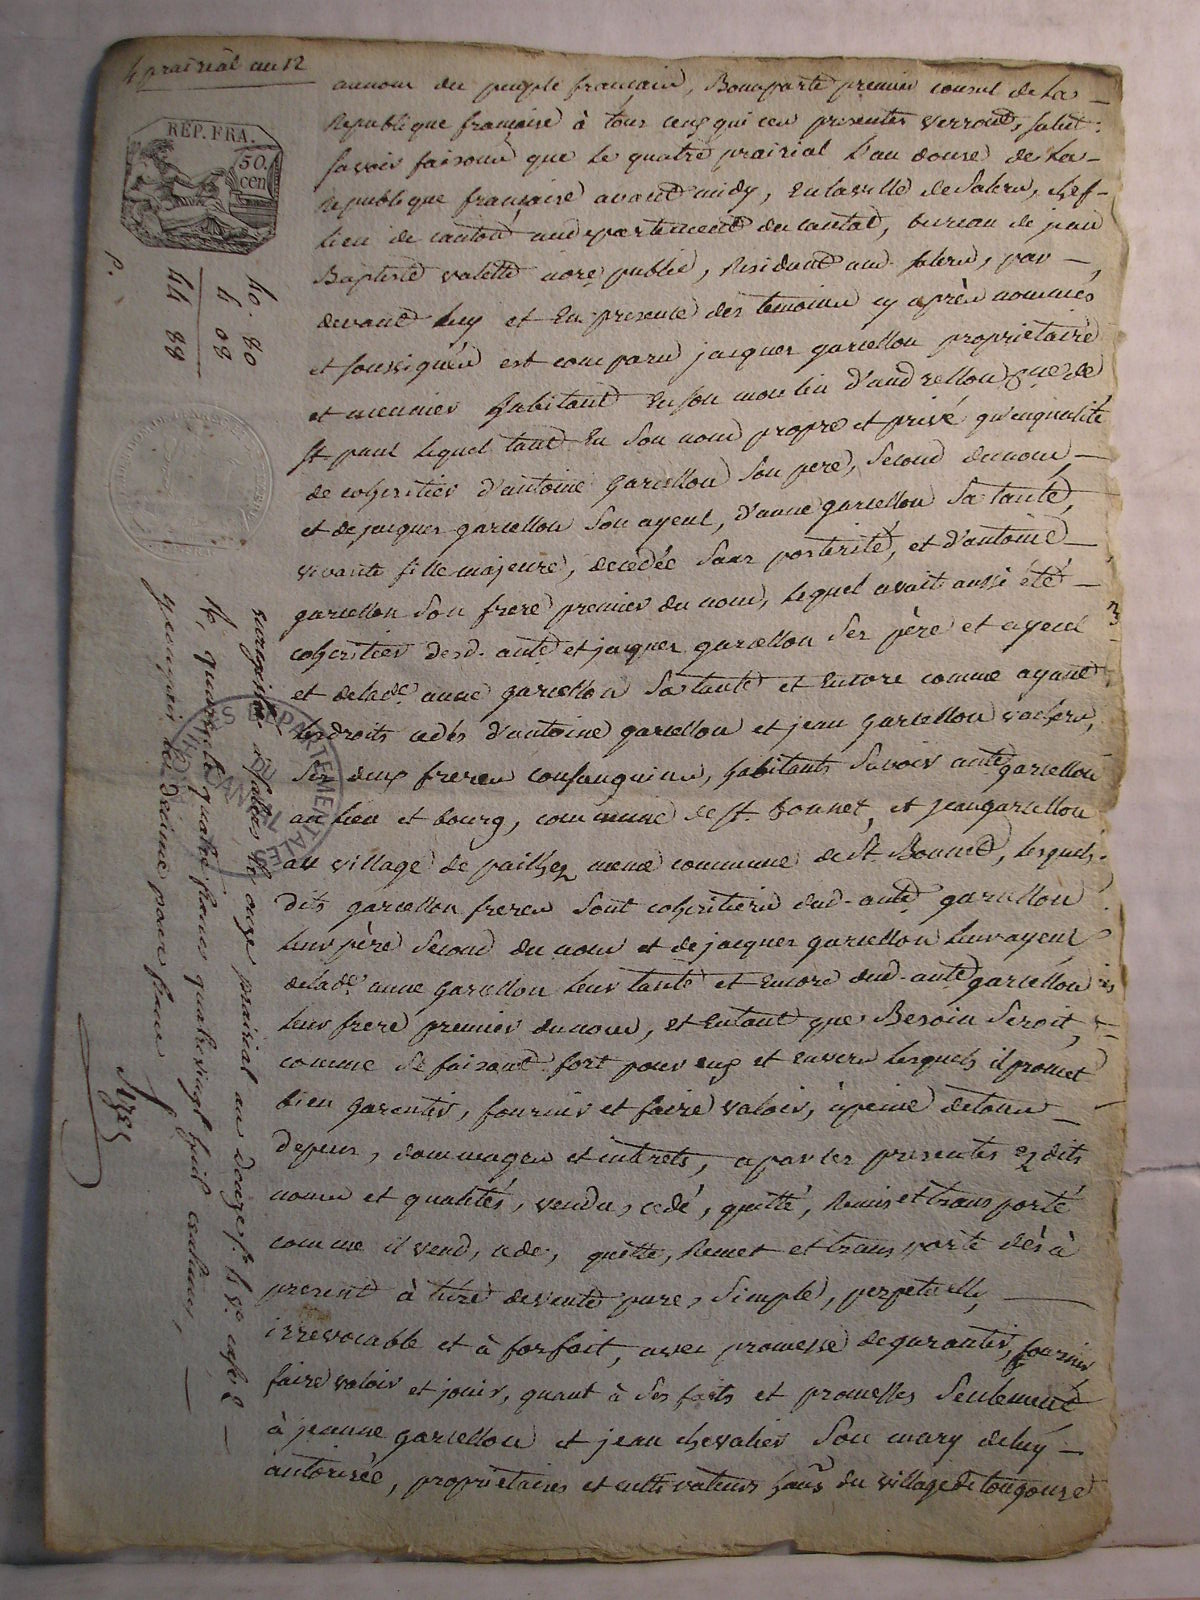 4 prairial an 12
REP. FRA.
50.
cen
40. 80
4 08
44 88
au nom du peuple français, Bonaparte premier consul de la
Republique française à tous ceux qui ces presentes verront, salut:
savoir faisons que le quatre prairial l'an douze de la
republique française avant midy, en la ville de Salers, chef-
lieu de canton au departement du cantal, bureau de jean
Baptiste valette nore public, residant aud. salers, par
devant luy et en presence des temoins cy après nommés
et soussignés est comparu jacques garcellon propriétaire
et meunier habitant en son moulin d'
st paul lequel tant en son nom propre et privé qu'en qualité
de coheritier d'antoine garcellon son pere, second du nom
et de jacques garcellon son ayeul, d'anne garcellon sa tante,
vivante fille majeure, decedée sans posterité, et d'antoine
garcellon son frere premier du nom, lequel avait aussi été
coheritier desd. ante et jacques garcellon ses père et ayeul
et de lade anne garcellon sa tante et encore comme ayant
les droits cedés d'antoine garcellon et jean garcellon vachers,
ses deux freres consanguins, habitants savoir ante garcellon
au lieu et bourg, commune de st. bonnet, et jean garcellon
au village de pailhez meme commune de st Bonnet, lesquels
dits garcellon freres sont coheritiers dud. ante garcellon
leur père second du nom et de jacques garcellon leur ayeul
de lade anne garcellon leur tante et encore dud. ante garcellon
leur frere premier du nom, et en tant que Besoin seroit,
comme se faisant fort pour eux et envers lesquels il promet
bien garentir, fournir et faire valoir, à peine de tous
depens, dommages et interets, a par les presentes ez dits
noms et qualités, vendu, cedé, quitté, remis et transporté
comme il vend, cede, quitte, remet et transporte dès à
present à titre de vente pure, simple, perpetuelle,
irrevocable et à forfait, avec promesse de garantir, fournir
faire valoir et jouir, quant à ses faits et promesses seulement
à jeanne garcellon et jean chevalier son mary de luy
autorisée, propriétaires et cultivateurs hans du village de tougouze
enregistré à salers le onze prairial an douze f. 41 vo. case 2
, quarante quatre francs quatrevingt huit centimes,
y compris le decime pour franc
ARCHIVES DEPARTEMENTALES
DU CANTAL